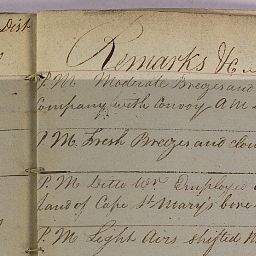 Dist
Remarks &c
P.M Moderate Breezes and
Company with Convoy A M
P.M. Fresh Breezes and clou
P.M Ditto Wr. Employed
land of Cape St Mary's bore
P.M Light Airs shifted